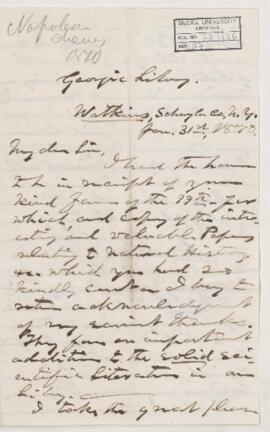 Napoleon
Cheney
1870
McGILL UNIVERSITY
ARCHIVES
ACC. NO.
REF.
Georgic Library.
Watkins, Schuyler Co, N.Y.
Jan. 31st, 1870.
My dear Sir,
I have the honor
to be in receipt of your
kind favor of the 19th
which, and copy of the inter-
esting and valuable Papers
relating to Natural History,
&c. which you had so
kindly sent me I beg to
return acknowledgment
of my earnest thanks.
They form an important
addition to the solid sci-
entific literature in our
Library.
I take the great pleas